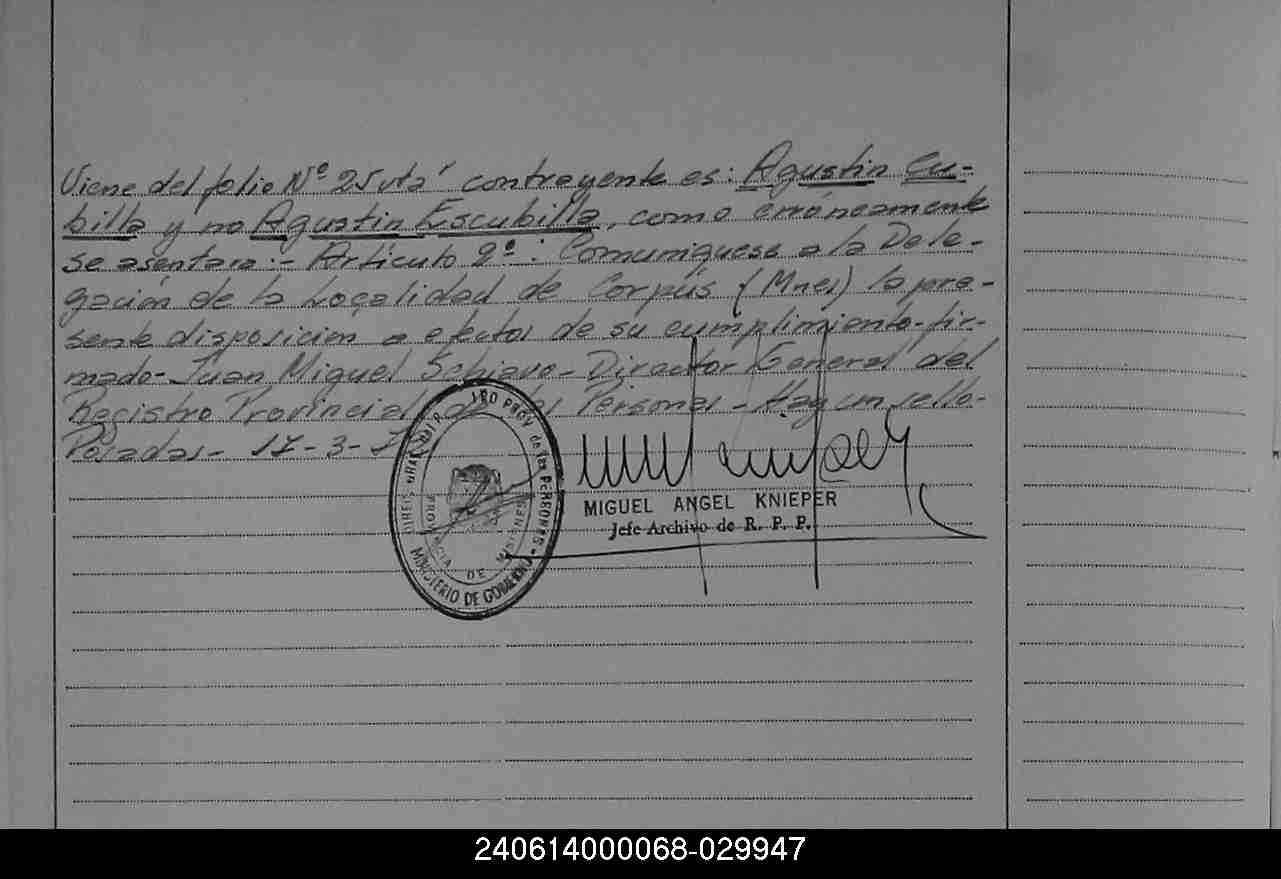 Viene del folio Nº 25 vta' contrayente es: Agustin Cu-
billa y no Agustin Escubilla, como erróneamente
se asentara:- Artículo 2º: Comuníquese a la Dele-
gación de la Localidad de Corpús (Mnes) la pre-
sente disposición a efectos de su cumplimiento- fir-
mado- Juan Miguel Schiavo- Director General del
Registro Provincial de las Personas- Hay un sello-
Posadas- 17-3-
MIGUEL ANGEL KNIEPER
Jefe Archivo de R. P. P.
PROV de las PERSONAS
MINISTERIO DE GOBIERNO
PROVINCIA DE MISIONES
240614000068-029947